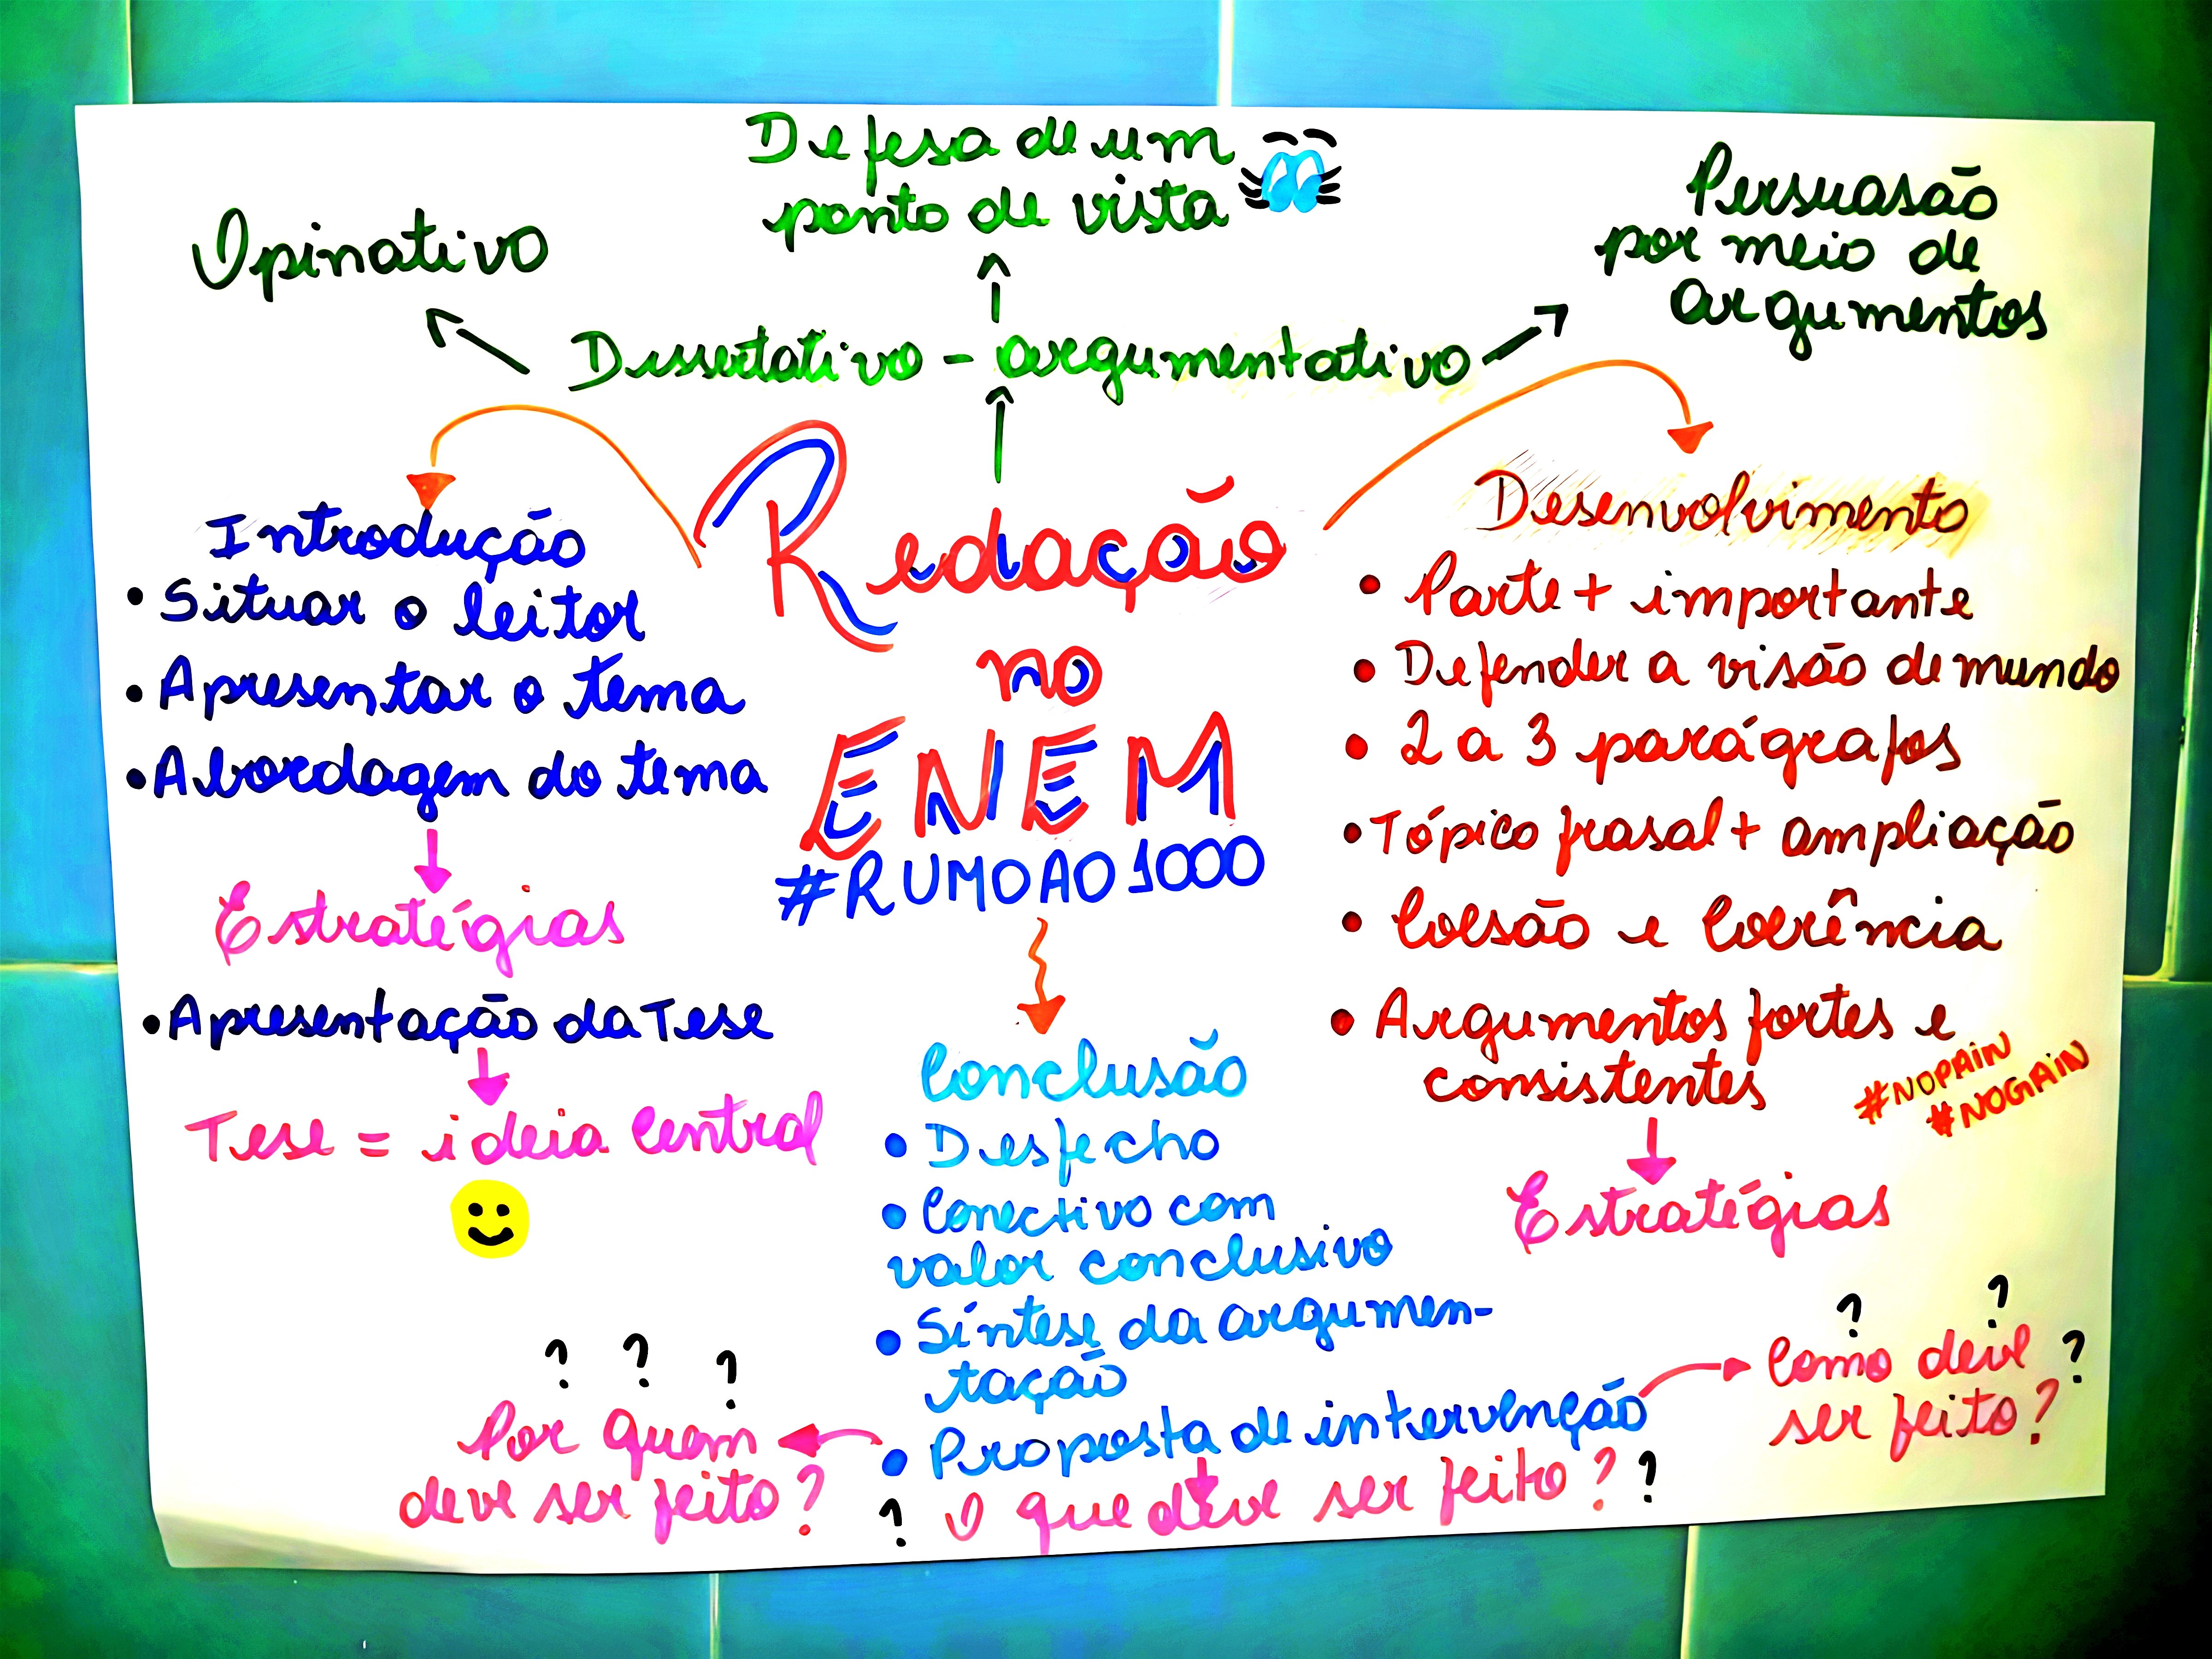 Defesa de um
ponto de vista
Opinativo
Persuasão
por meio de
argumentos
Dissertativo - argumentativo
Redação
no
ENEM
#RUMOAO1000
Introdução
• Situar o leitor
• Apresentar o tema
• Abordagem do tema
Estratégias
• Apresentação da Tese
Tese = ideia central
Desenvolvimento
• Parte + importante
• Defender a visão de mundo
• 2 a 3 parágrafos
• Tópico frasal + ampliação
• Coesão e Coerência
• Argumentos fortes e
consistentes
#NOPAIN
#NOGAIN
Estratégias
Conclusão
• Desfecho
• Conectivo com
valor conclusivo
• Síntese da argumen-
tação
• Proposta de intervenção
? ? ?
Por quem
deve ser feito?
? O que deve ser feito? ?
? ?
Como deve ?
ser feito?